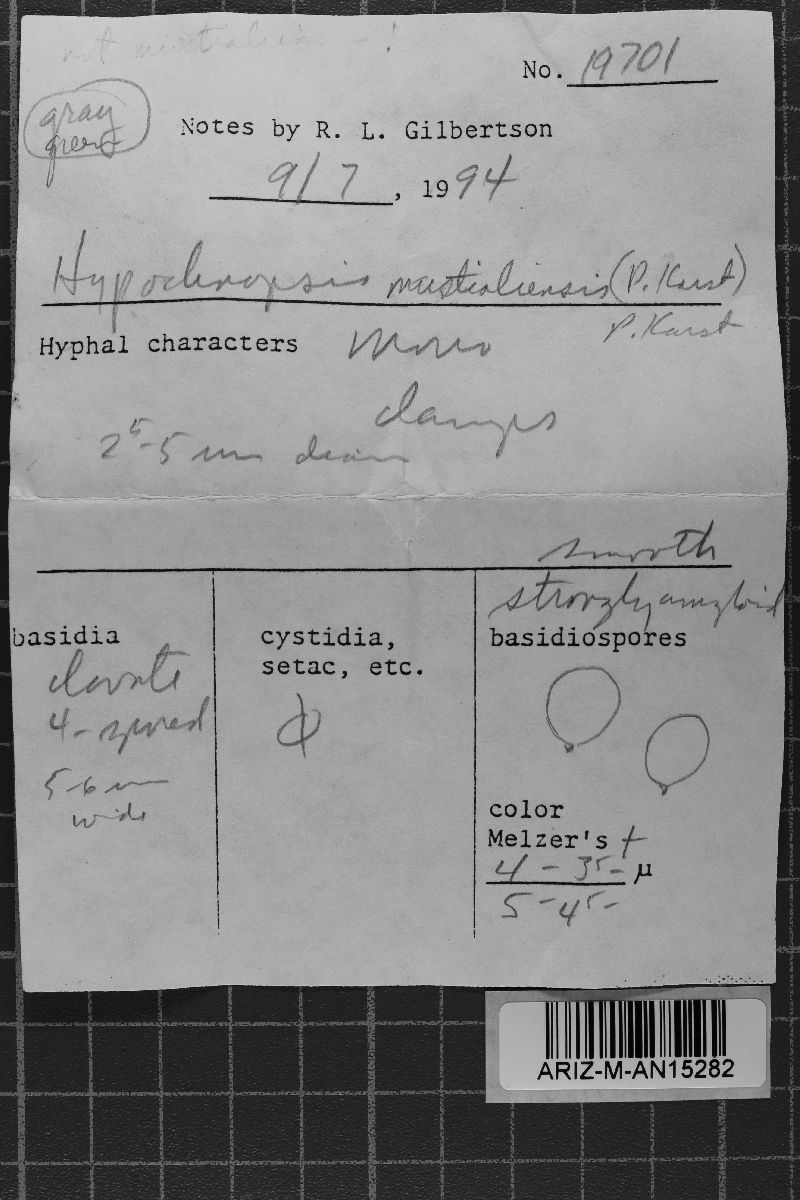 not mustialiensis !
No. 19701
gray
green
Notes by R. L. Gilbertson
9/7, 1994
Hypochnopsis mustialiensis (P. Karst)
P. Karst
Hyphal characters mono
clamps
2⁵-5 um diam
smooth
strongly amyloid
basidia
clavate
4-spored
5-6 um
wide
cystidia,
setac, etc.
basidiospores
color
Melzer's +
4 - 3⁵- µ
5 - 4⁵-
ARIZ-M-AN15282